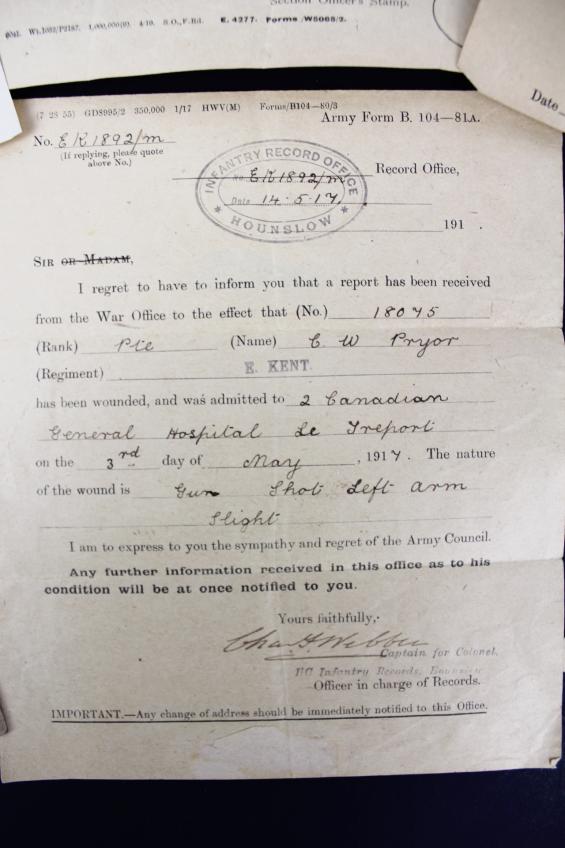 Section Officer's Stamp.
6041. Wt.1082/P2187. 1,000,000(9). 4/10. S.O.,F.Rd. E. 4277. Forms/W5068/2.
Date
(7 28 55) GD8995/2 350,000 1/17 HWV(M) Forms/B104—80/3
Army Form B. 104—81A.
No. EK1892/m
(If replying, please quote
above No.)
INFANTRY RECORD OFFICE
No. EK1892/m
Date 14.5.17.
HOUNSLOW
Record Office,
191 .
SIR OR MADAM,
I regret to have to inform you that a report has been received
from the War Office to the effect that (No.) 18075
(Rank) Pte (Name) C W Pryor
(Regiment) E. KENT.
has been wounded, and was admitted to 2 Canadian
General Hospital Le Treport
on the 3rd day of May , 1917. The nature
of the wound is Gun Shot Left arm
Slight
I am to express to you the sympathy and regret of the Army Council.
Any further information received in this office as to his
condition will be at once notified to you.
Yours faithfully,
Chas H Webber
Captain for Colonel,
I/C Infantry Records, Hounslow
Officer in charge of Records.
IMPORTANT.—Any change of address should be immediately notified to this Office.